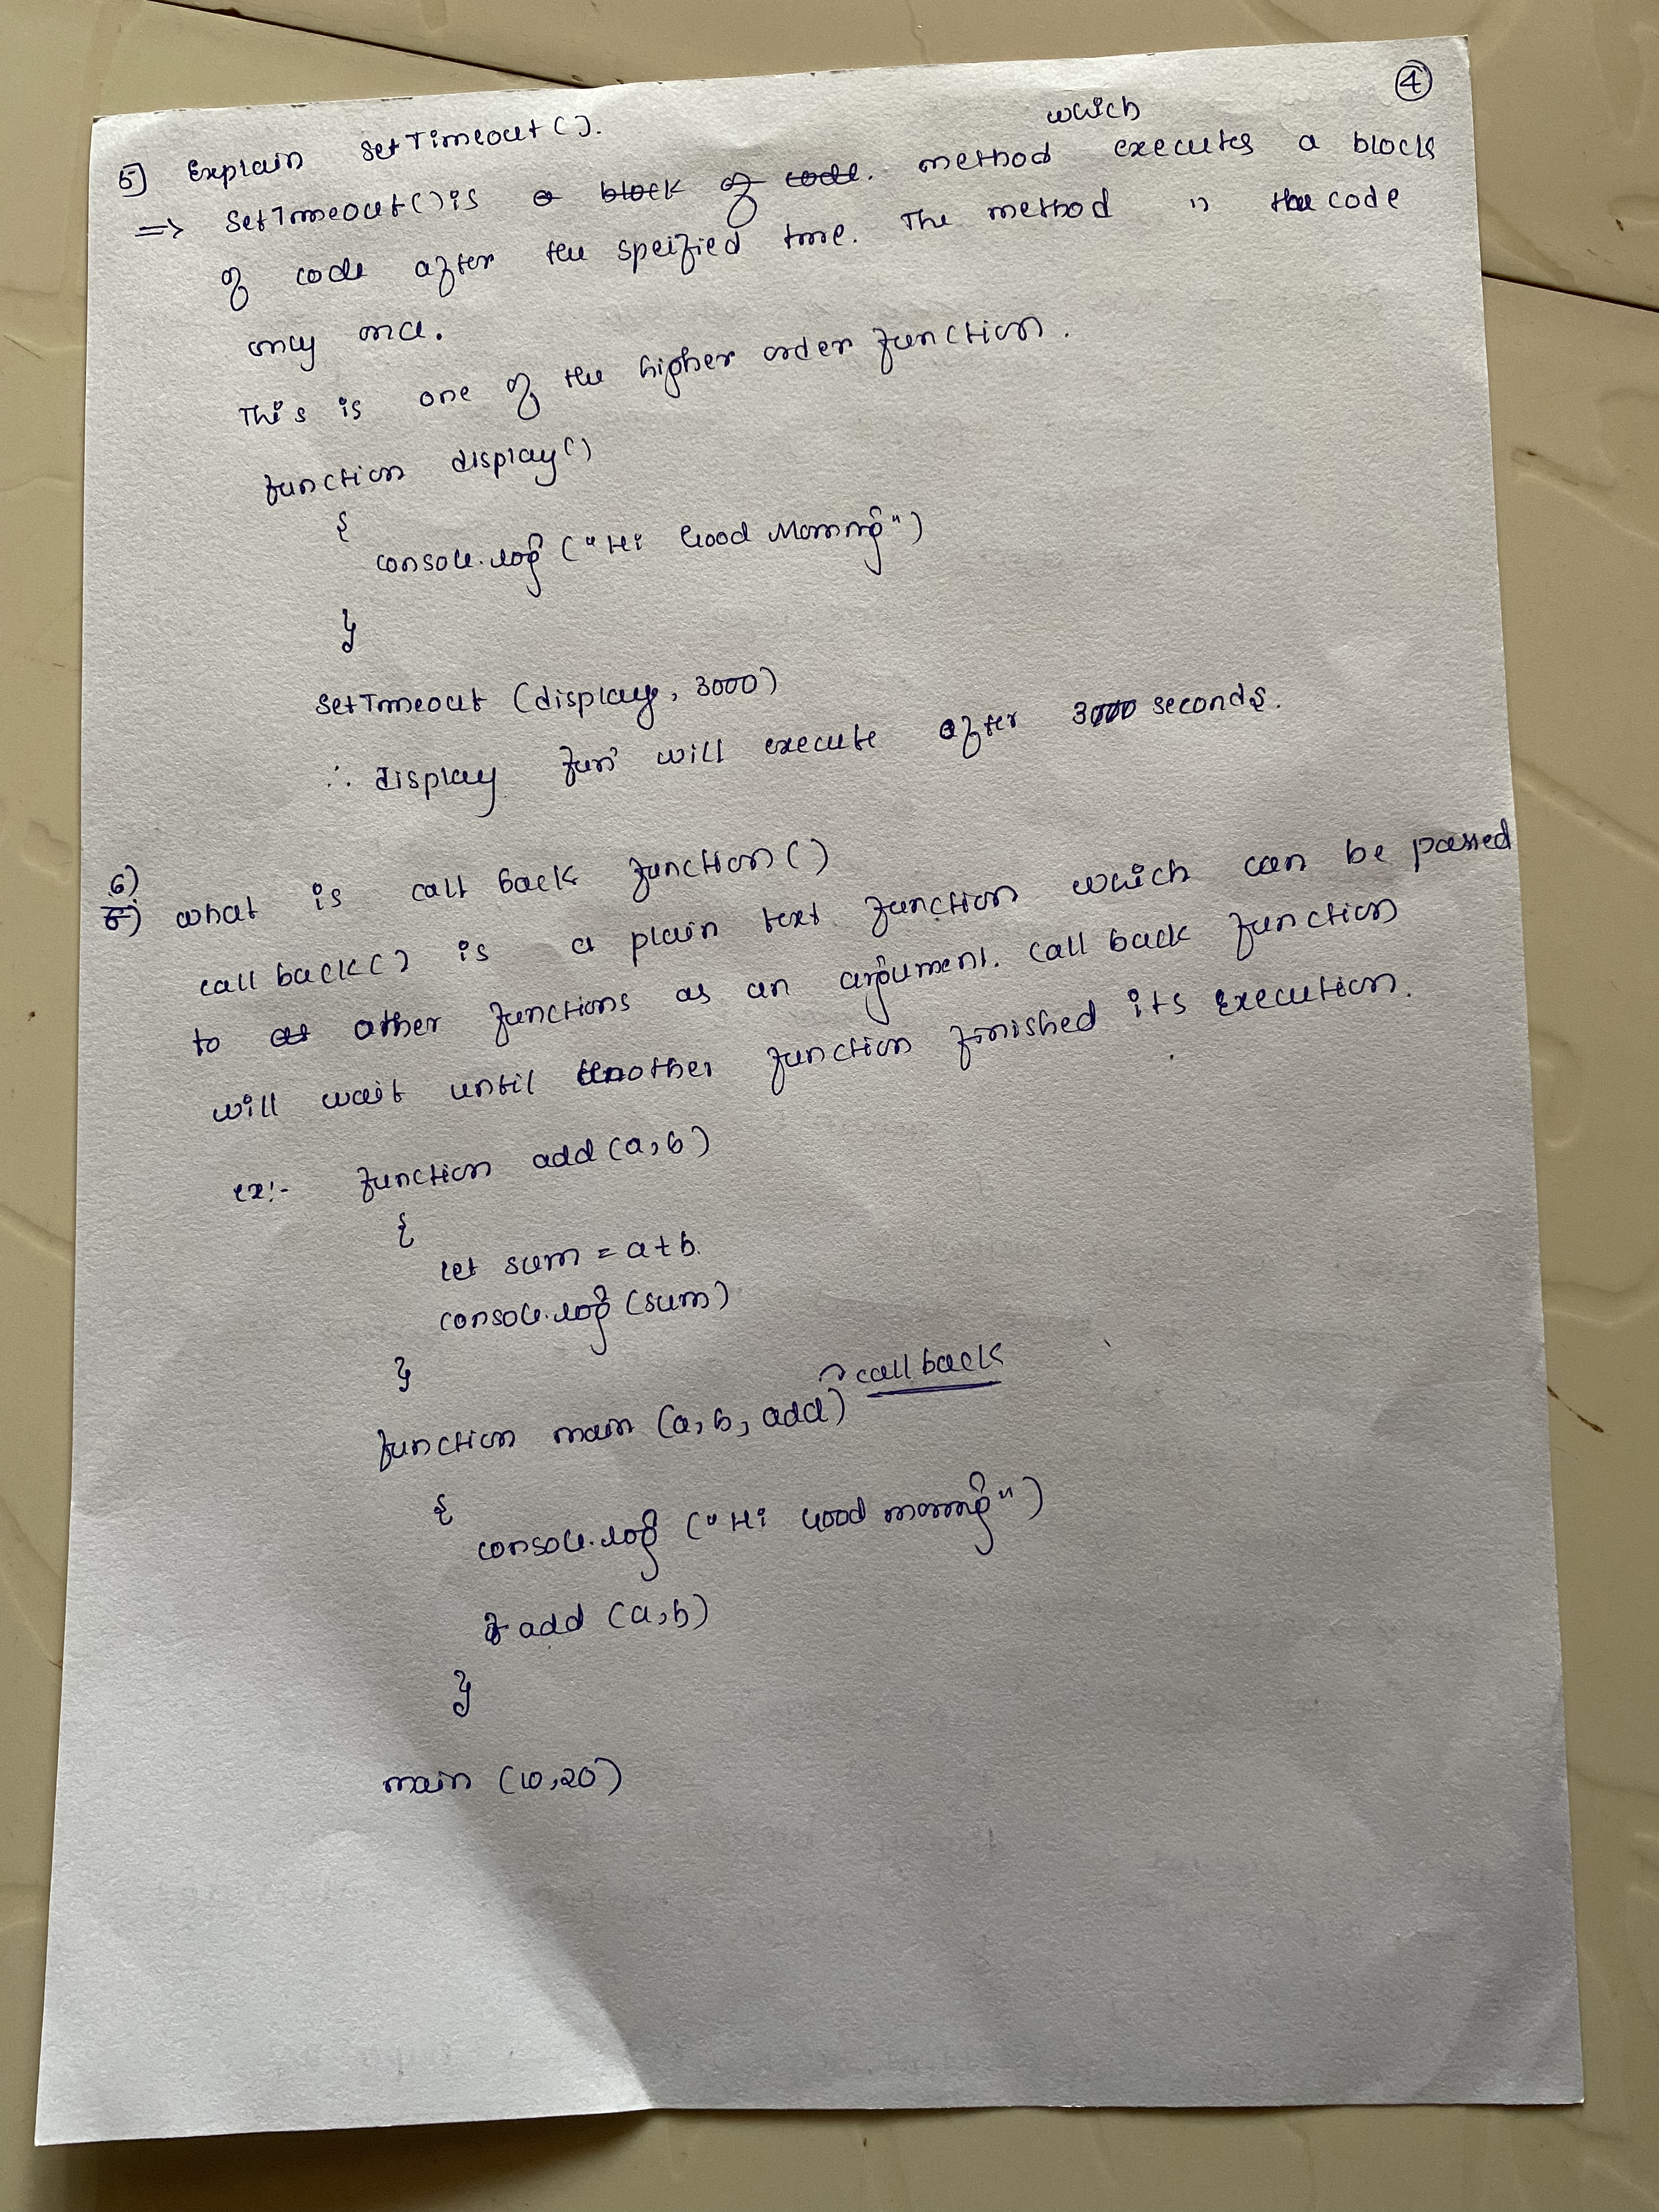 ④
5] Explain SetTimeout().
which
=> SetTimeout() is a block of code. method executes a block
of code after the speified time. The method " the code
only once.
This is one of the higher order function.
function display()
{
console.log ("Hi Good Morning")
}
SetTimeout (display, 3000)
∴ display fun' will execute after 3000 seconds.
6)
5) what is call back function()
call back() is a plain text function which can be passed
to other functions as an argument. call back function
will wait until another function finished its execution.
ex:- function add (a, b)
{
let sum = a+b.
console.log (sum)
}
call back
function main (a, b, add)
{
console.log ("Hi Good morning")
add (a, b)
}
main (10,20)